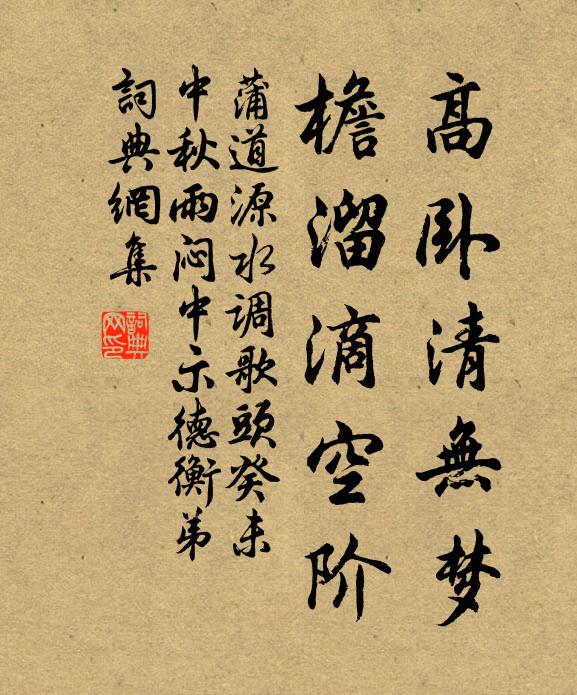 高卧清無梦
檐溜滴空阶
蒲道源水调歌頭癸未
中秋雨闷中示德衡弟
詞典網集
詞典网印